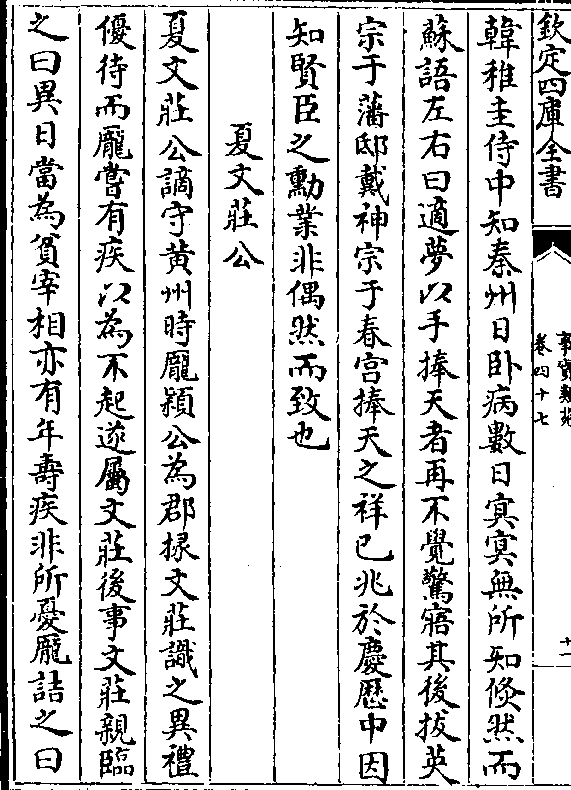 欽定四庫全書
事實類苑
卷四十七
十一
韓稚圭侍中知秦州日卧病數日冥冥無所知倐然而
蘇語左右曰適夢以手捧天者再不覺驚寤其後拔英
宗于藩邸戴神宗于春宫捧天之祥已兆於慶歴中因
知賢臣之勲業非偶然而致也
夏文莊公
夏文莊公謫守黄州時龎潁公為郡掾文莊識之異禮
優待而龎嘗有疾以為不起遂屬文莊後事文莊親臨
之曰異日當為貧宰相亦有年壽疾非所憂龎詰之曰